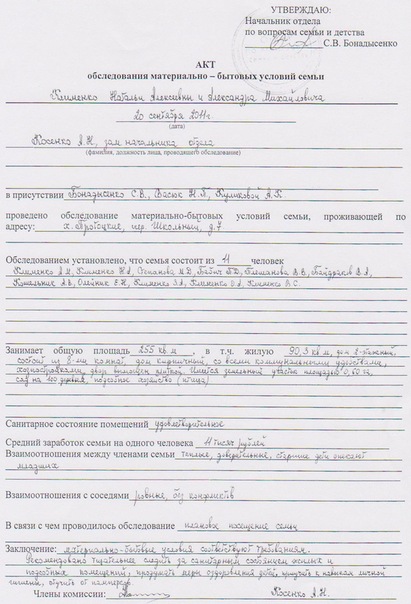 УТВЕРЖДАЮ:
Начальник отдела
по вопросам семьи и детства
С.В. Бонадысенко
АКТ
обследования материально – бытовых условий семьи
Клименко Натальи Алексеевны и Александра Михайловича
20 сентября 2011г.
(дата)
Косенко А.Н., зам. начальника отдела
(фамилия, должность лица, проводящего обследование)
в присутствии Бонадысенко С.В., Васюк Н.П., Куликовой А.К.
проведено обследование материально-бытовых условий семьи, проживающей по
адресу: х. Протоцкие, пер. Школьный, д.7
Обследованием установлено, что семья состоит из 11 человек
Клименко А.М., Клименко Н.А., Степанова М.Д., Бабич М.Д., Плешанова В.В., Байдраков В.А.,
Кательник А.В., Олейник Е.Н., Клименко З.А., Клименко О.А., Клименко В.С.
Занимает общую площадь 255 кв м , в т.ч. жилую 90,3 кв м, дом 2-этажный,
состоит из 8-ми комнат, дом кирпичный, со всеми коммунальными удобствами,
хозпостройками, двор вымощен плиткой. Имеется земельный участок площадью 0,60 га,
сад на 200 деревьев, подсобное хозяйство (птица)
Санитарное состояние помещений удовлетворительное
Средний заработок семьи на одного человека 11 тысяч рублей
Взаимоотношения между членами семьи теплые, доверительные, старшие дети опекают
младших
Взаимоотношения с соседями ровные, без конфликтов
В связи с чем проводилось обследование плановое посещение семьи
Заключение: материально-бытовые условия соответствуют требованиям.
Рекомендовано тщательнее следить за санитарным состоянием жилых и
подсобных помещений, продумать меры оздоровления детей, приучать к навыкам личной
гигиены, отучить от памперсов
Члены комиссии: Косенко А.Н.